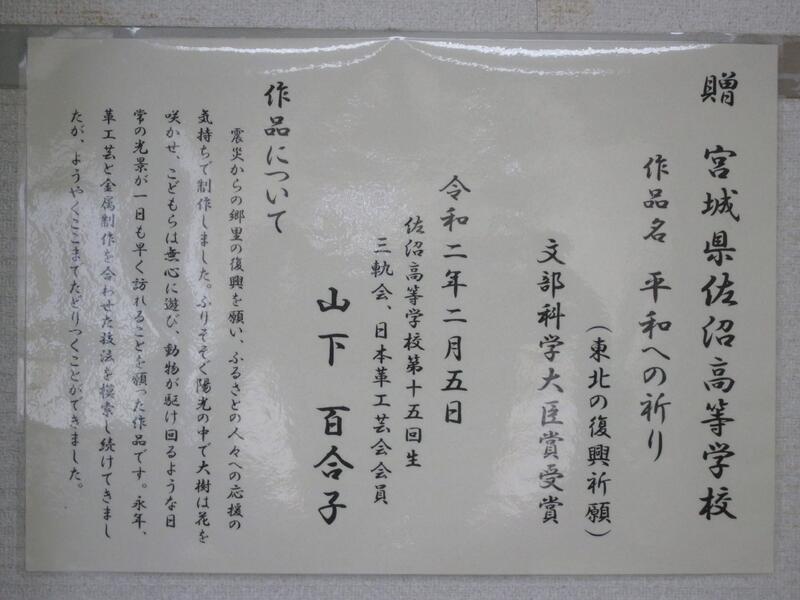 贈 宮城県佐沼高等学校
作品名 平和への祈り
(東北の復興祈願)
文部科学大臣賞受賞
令和二年二月五日
佐沼高等学校第十五回生
三軌会、日本革工芸会会員
山下 百合子
作品について
震災からの郷里の復興を願い、ふるさとの人々への応援の
気持ちで制作しました。ふりそそぐ陽光の中で大樹は花を
咲かせ、こどもらは無心に遊び、動物が駆け回るような日
常の光景が一日も早く訪れることを願った作品です。永年、
革工芸と金属制作を合わせた技法を模索し続けてきまし
たが、ようやくここまでたどりつくことができました。